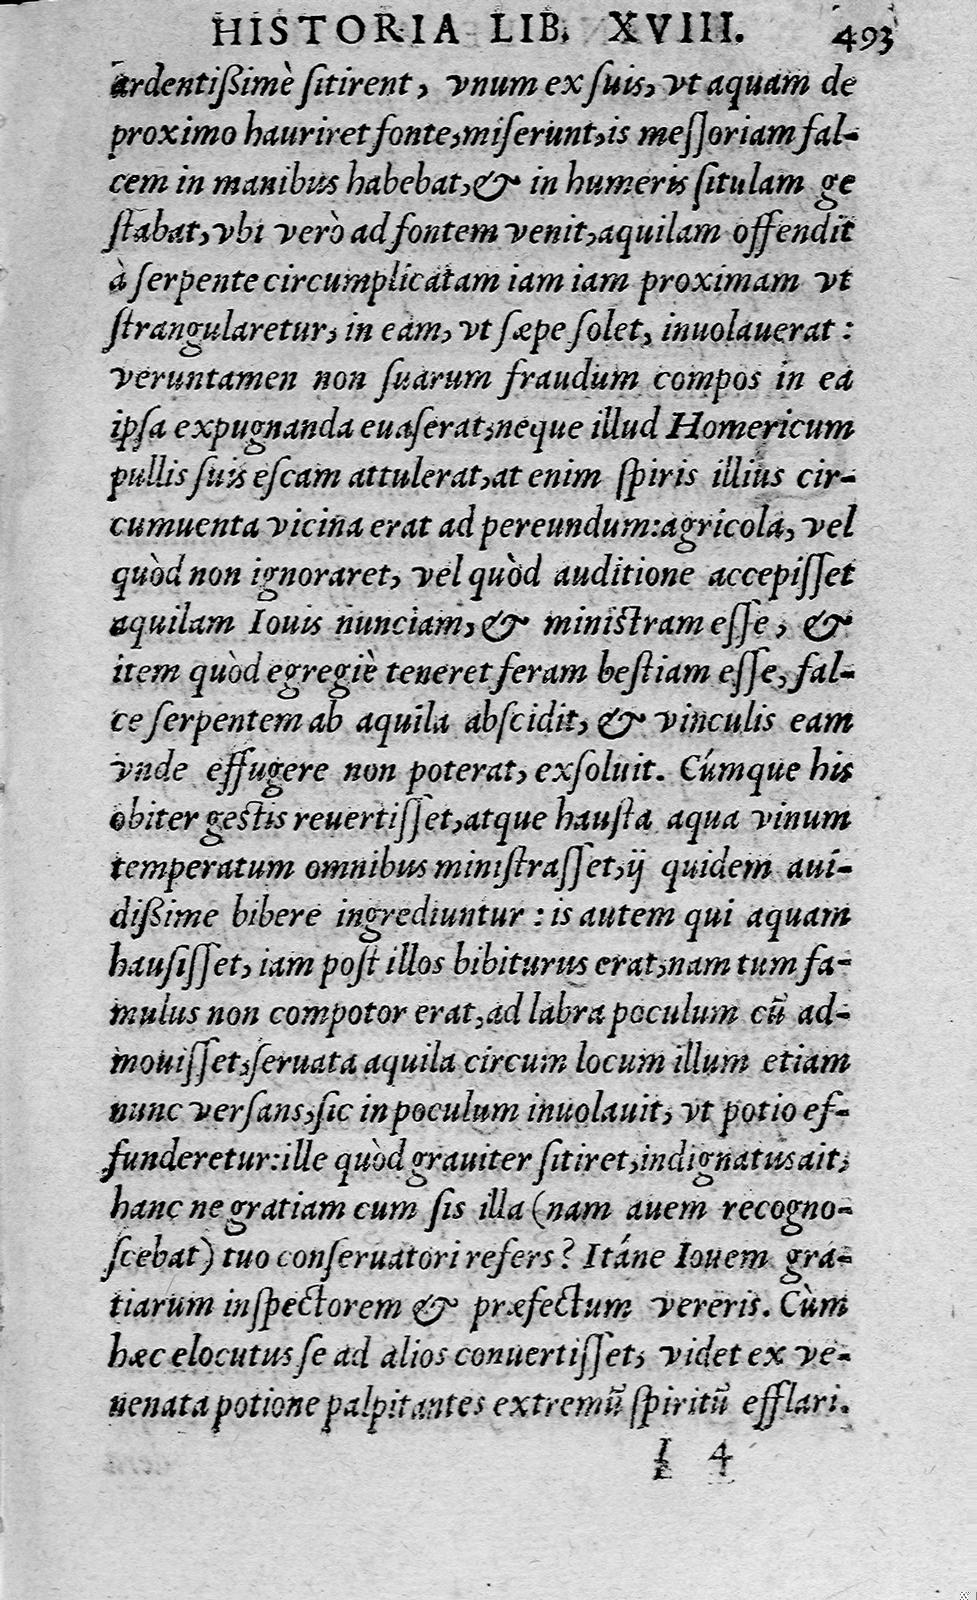 HISTORIA LIB. XVIII. 493
ardentißimè ſitirent, vnum ex ſuis, vt aquam de
proximo hauriret fonte,miſerunt,is meſſoriam fal-
cem in manibus habebat,& in humeris ſitulam ge
ſtabat,vbi verò ad fontem venit,aquilam offendit
à ſerpente circumplicatam iam iam proximam vt
ſtrangularetur, in eam, vt ſæpe ſolet, inuolauerat:
veruntamen non ſuarum fraudum compos in ea
ipſa expugnanda euaſerat,neque illud Homericum
pullis ſuis eſcam attulerat,at enim ſpiris illius cir-
cumuenta vicina erat ad pereundum:agricola, vel
quòd non ignoraret, vel quòd auditione accepiſſet
aquilam Iouis nunciam,& miniſtram eſſe, &
item quòd egregiè teneret feram beſtiam eſſe, fal-
ce ſerpentem ab aquila abſcidit, & vinculis eam
vnde effugere non poterat, exſoluit. Cúmque his
obiter geſtis reuertiſſet,atque hauſta aqua vinum
temperatum omnibus miniſtraſſet,ij quidem aui-
dißime bibere ingrediuntur : is autem qui aquam
hauſiſſet, iam poſt illos bibiturus erat,nam tum fa-
mulus non compotor erat,ad labra poculum cū ad-
mouiſſet,ſeruata aquila circum locum illum etiam
nunc verſans,ſic in poculum inuolauit, vt potio ef-
funderetur:ille quòd grauiter ſitiret,indignatus ait,
hanc ne gratiam cum ſis illa (nam auem recogno-
ſcebat) tuo conſeruatori refers? Itáne Iouem gra-
tiarum inſpectorem & præfectum vereris. Cùm
hæc elocutus ſe ad alios conuertiſſet, videt ex ve-
nenata potione palpitantes extremū ſpiritū efflari.
I 4